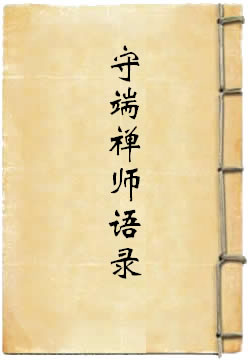 守端禅师语录